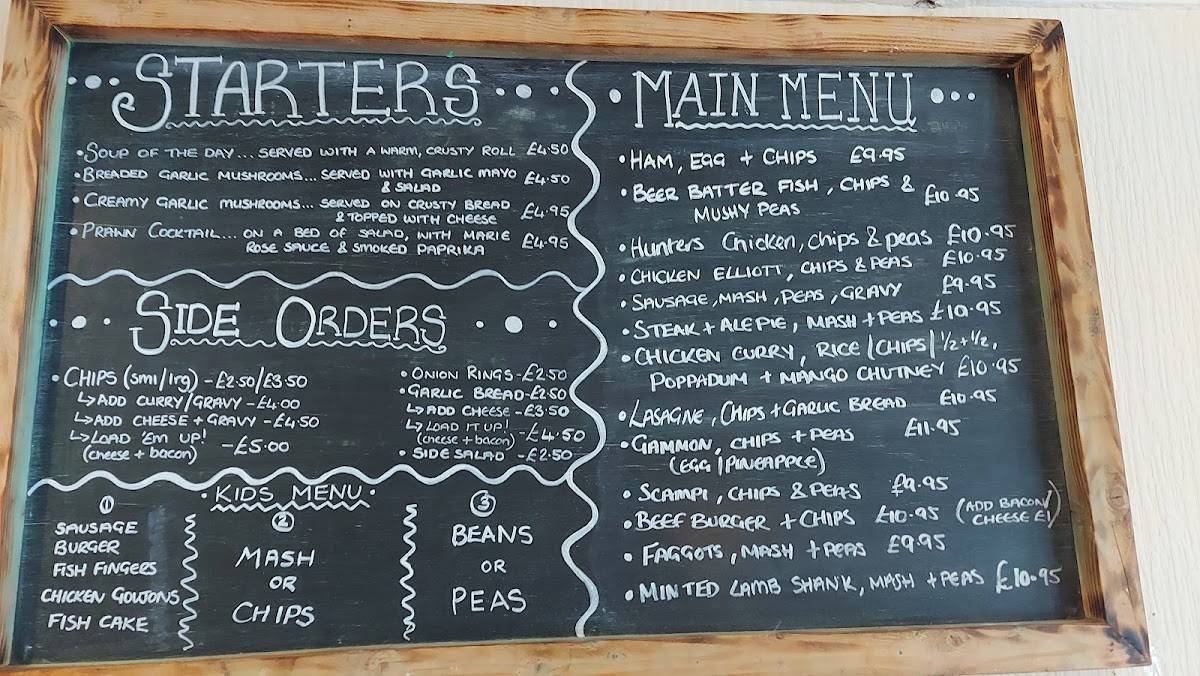 STARTERS
• SOUP OF THE DAY... SERVED WITH A WARM, CRUSTY ROLL £4.50
• BREADED GARLIC MUSHROOMS... SERVED WITH GARLIC MAYO
& SALAD £4.50
• CREAMY GARLIC MUSHROOMS... SERVED ON CRUSTY BREAD
& TOPPED WITH CHEESE £4.95
• PRAWN COCKTAIL... ON A BED OF SALAD, WITH MARIE
ROSE SAUCE & SMOKED PAPRIKA £4.95
SIDE ORDERS
• CHIPS (sml/lrg) - £2.50/£3.50
↳ ADD CURRY/GRAVY - £4.00
↳ ADD CHEESE + GRAVY - £4.50
↳ LOAD 'EM UP!
(cheese + bacon) - £5.00
• ONION RINGS - £2.50
• GARLIC BREAD - £2.50
↳ ADD CHEESE - £3.50
↳ LOAD IT UP!
(cheese + bacon) - £4.50
• SIDE SALAD - £2.50
• KIDS MENU •
①
SAUSAGE
BURGER
FISH FINGERS
CHICKEN GOUJONS
FISH CAKE
②
MASH
OR
CHIPS
③
BEANS
OR
PEAS
MAIN MENU
• HAM, EGG + CHIPS £9.95
• BEER BATTER FISH, CHIPS &
MUSHY PEAS £10.95
• Hunters Chicken, chips & peas £10.95
• CHICKEN ELLIOTT, CHIPS & PEAS £10.95
• SAUSAGE, MASH, PEAS, GRAVY £9.95
• STEAK + ALE PIE, MASH + PEAS £10.95
• CHICKEN CURRY, RICE/CHIPS/½+½,
POPPADUM + MANGO CHUTNEY £10.95
• LASAGNE, CHIPS + GARLIC BREAD £10.95
• GAMMON, CHIPS + PEAS £11.95
(EGG/PINEAPPLE)
• SCAMPI, CHIPS & PEAS £9.95
• BEEF BURGER + CHIPS £10.95 (ADD BACON/
CHEESE £1)
• FAGGOTS, MASH + PEAS £9.95
• MINTED LAMB SHANK, MASH + PEAS £10.95